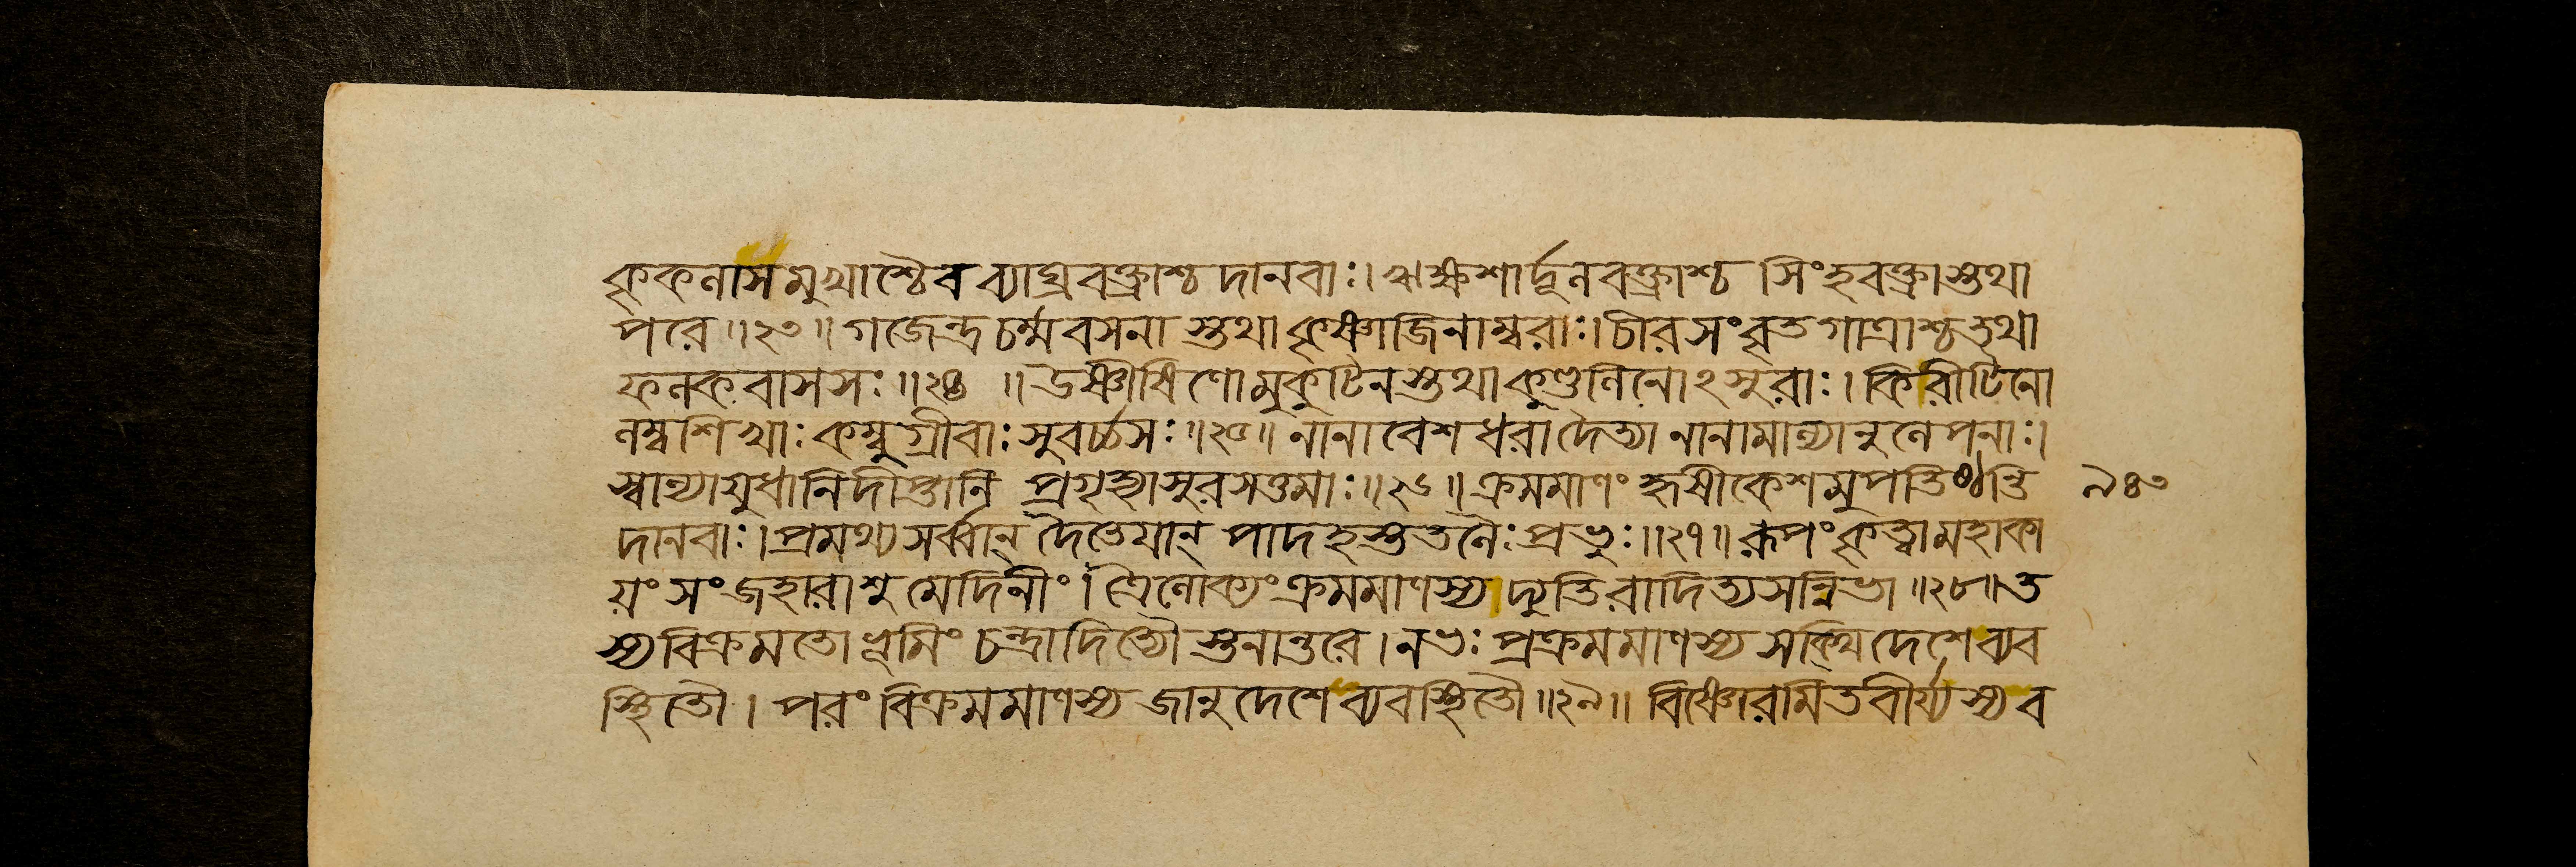 কৃকলাসমুখাশ্চৈব ব্যাঘ্রবক্ত্রাশ্চ দানবাঃ। ঋক্ষশার্দ্দূলবক্ত্রাশ্চ সিংহবক্ত্রাস্তথা
পরে॥২৩॥ গজেন্দ্রচর্ম্মবসনাস্তথা কৃষ্ণাজিনাম্বরাঃ। চীরসংবৃতগাত্রাশ্চ তথা
ফলকবাসসঃ॥২৪॥ উষ্ণীষিণো মুকুটিনস্তথা কুণ্ডলিনোঽসুরাঃ। কিরীটিনো
লম্বশিখাঃ কম্বুগ্রীবাঃ সুবর্চ্চসঃ॥২৫॥ নানাবেশধরা দৈত্যা নানামাল্যানুলেপনাঃ।
স্বান্যায়ুধানি দীপ্তানি প্রগৃহ্যাসুরসত্তমাঃ॥২৬॥ ক্রমমাণং হৃষীকেশমুপতিষ্ঠন্তি ৯৪৩
দানবাঃ। প্রমথ্য সর্ব্বান্ দৈতেয়ান্ পাদহস্ততলৈঃ প্রভুঃ॥২৭॥ রূপং কৃত্বা মহাকা
য়ং সংজহারাশু মেদিনীং। ত্রৈলোক্যং ক্রমমাণস্য দ্যুতিরাদিত্যসন্নিভা॥২৮॥ ত
স্য বিক্রমতো ভূমিং চন্দ্রাদিত্যৌ স্তনান্তরে। নভঃ প্রক্রমমাণস্য সক্থিদেশে ব্যব
স্থিতৌ। পরং বিক্রমমাণস্য জানুদেশে ব্যবস্থিতৌ॥২৯॥ বিষ্ণোরমিতবীর্য্যস্য ব